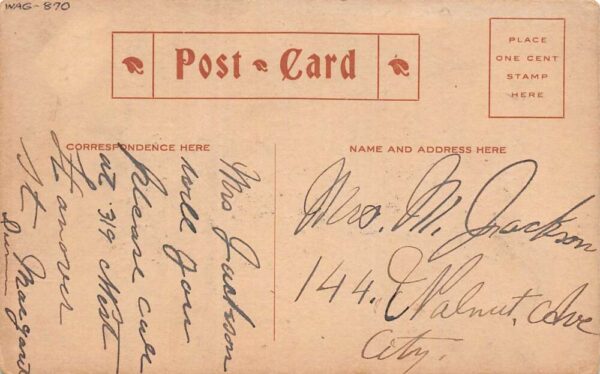 WAG-870
Post Card
PLACE
ONE CENT
STAMP
HERE
CORRESPONDENCE HERE
NAME AND ADDRESS HERE
Mrs Jackson
will you
please call
at 319 West
Hanover
St. Margaret
Mrs. M. Jackson
144. Walnut, Ave
City.